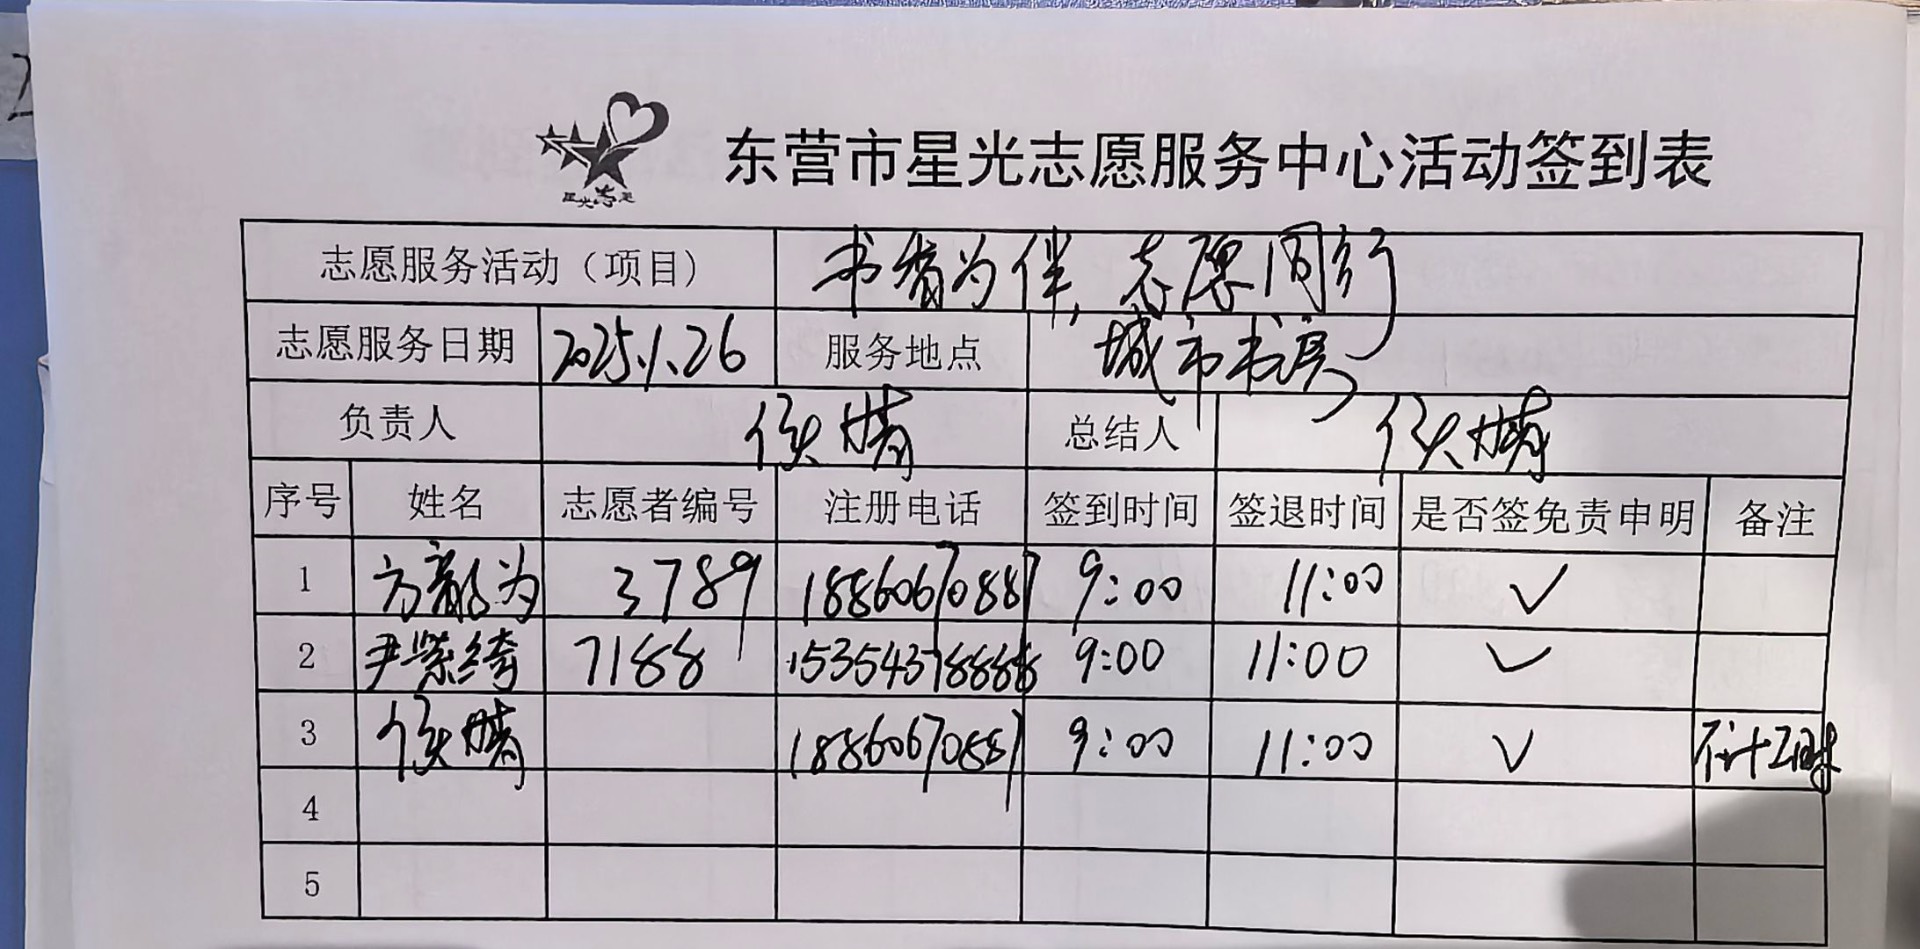 东营市星光志愿服务中心活动签到表
星光志愿
志愿服务活动（项目） 书香为伴，志愿同行
志愿服务日期 2025.1.26 服务地点 城市书房
负责人 侯婧 总结人 侯婧
序号 姓名 志愿者编号 注册电话 签到时间 签退时间 是否签免责申明 备注
1 方 为 3789 18860670887 9:00 11:00 ✓
2 尹紫绮 7188 15354378888 9:00 11:00 ✓
3 侯婧 18860670887 9:00 11:00 ✓ 不计工时
4
5